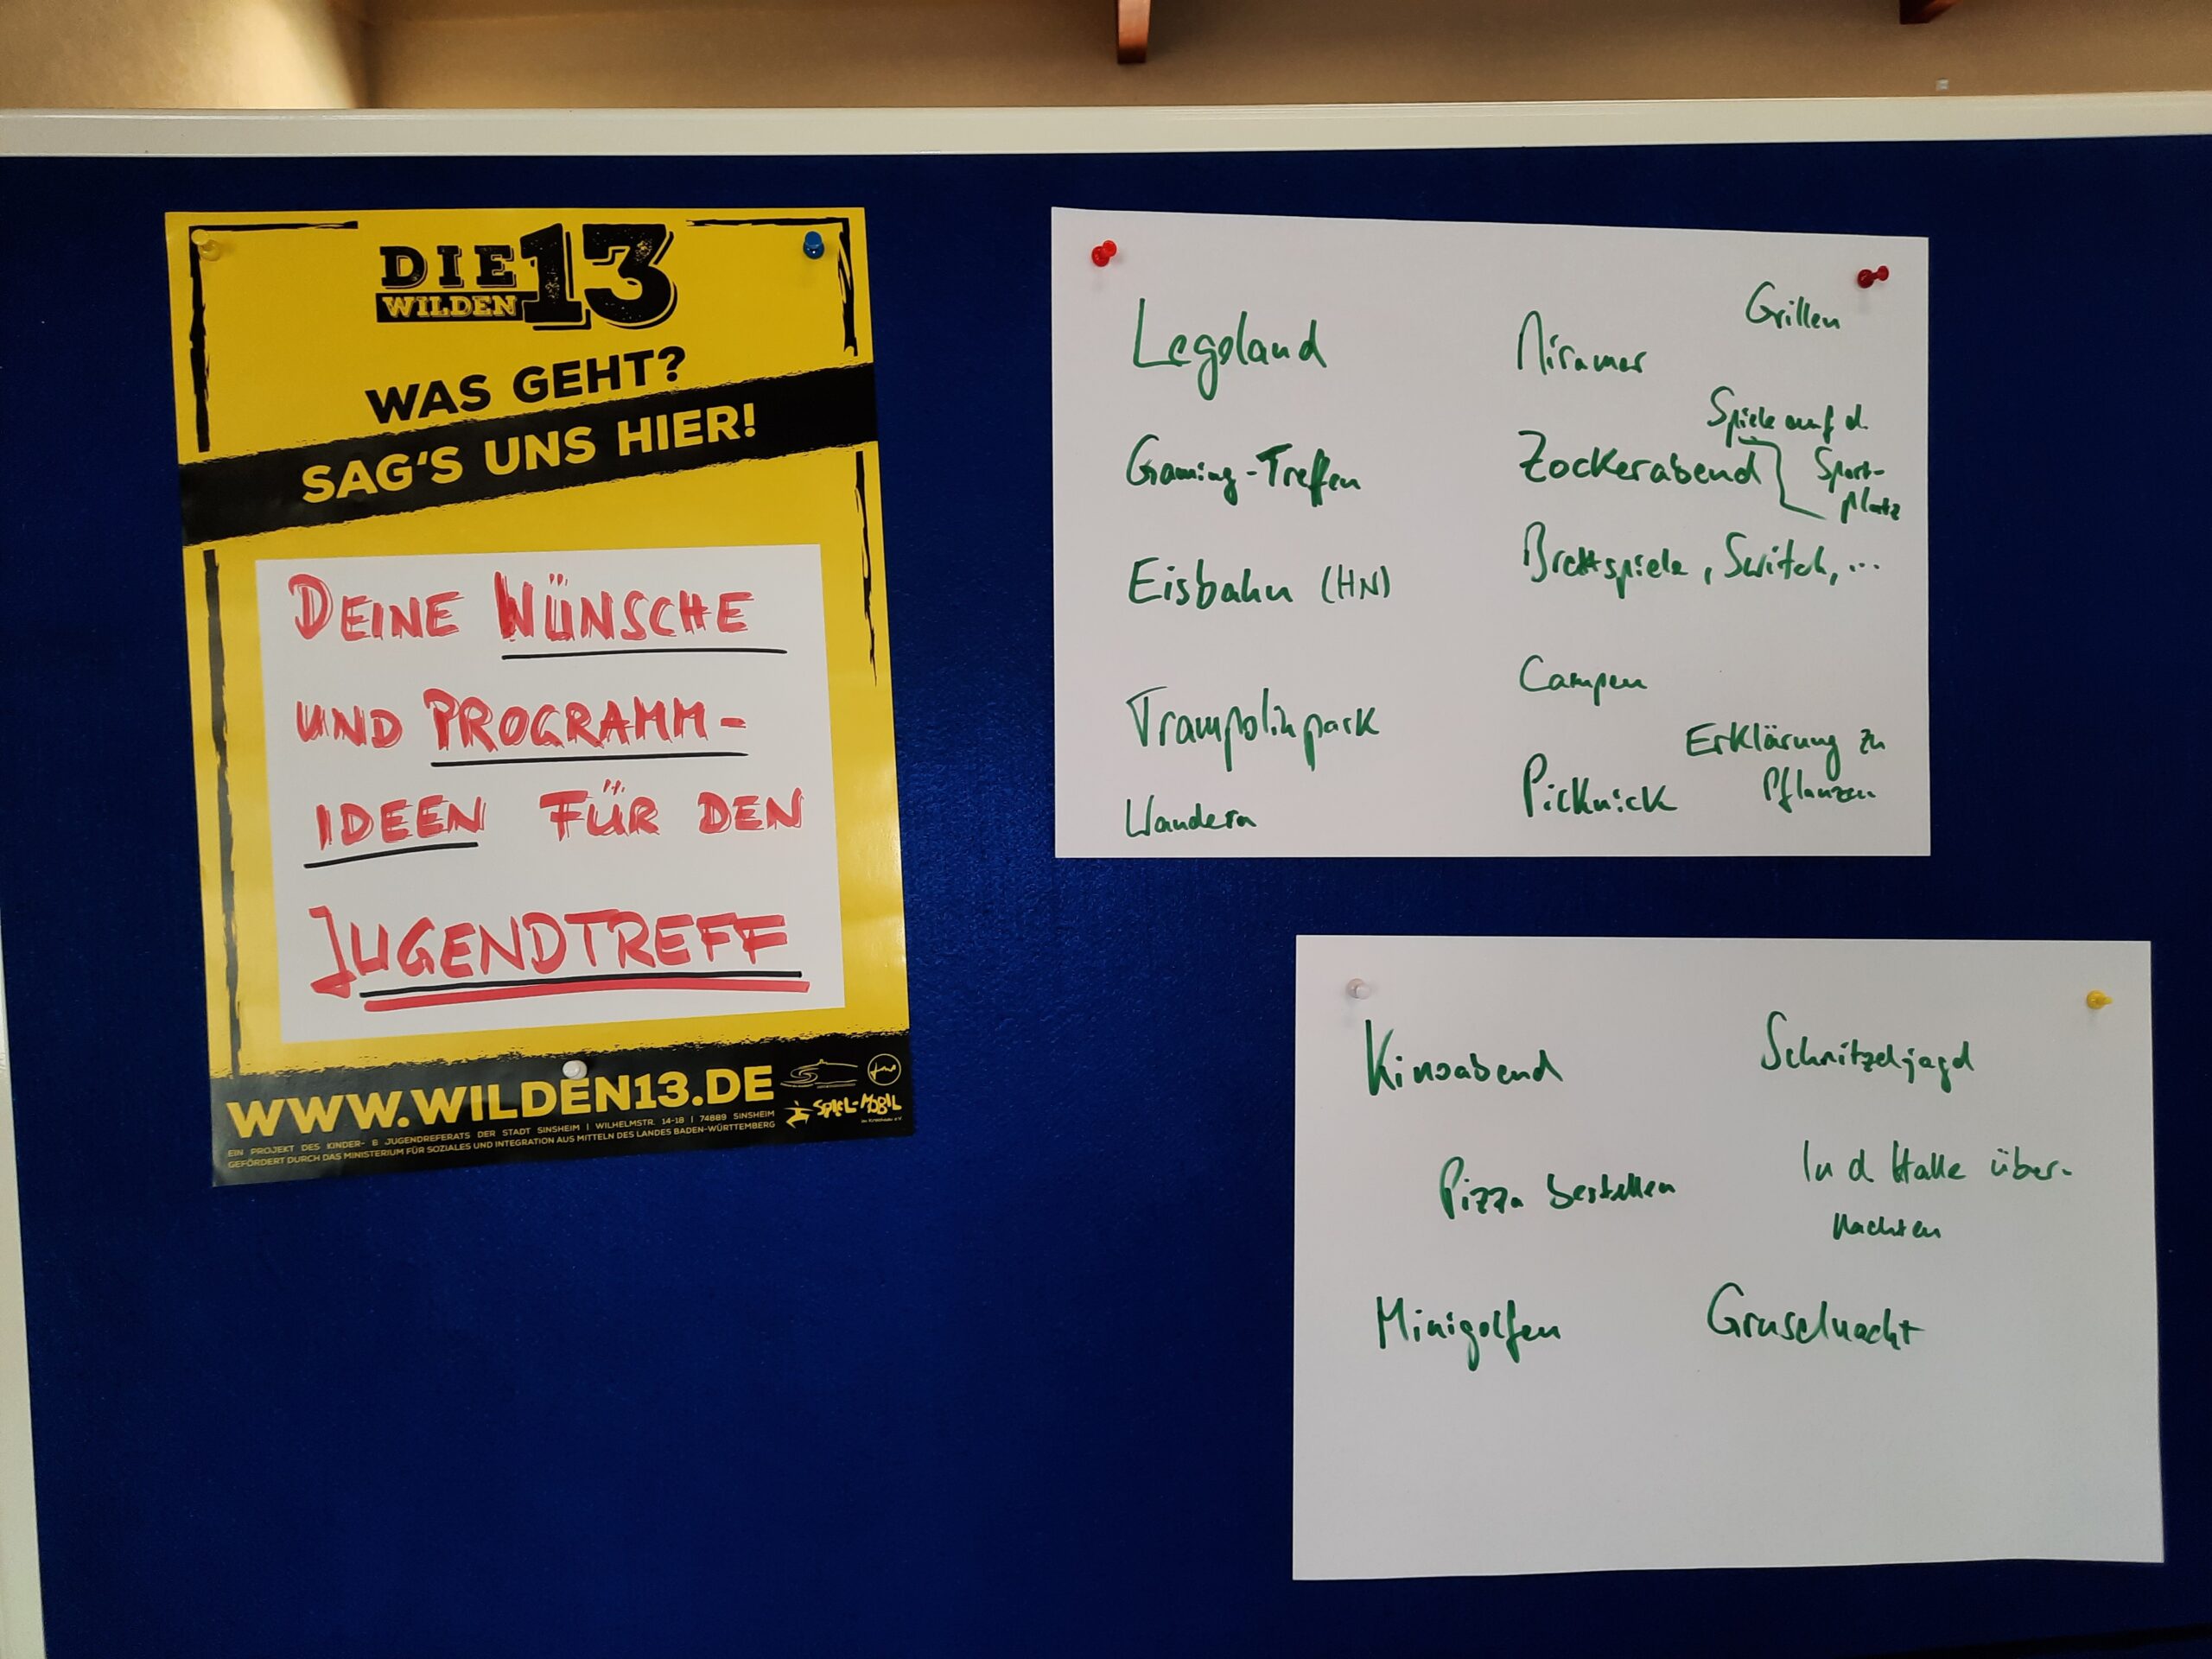 DIE WILDEN 13
WAS GEHT?
SAG'S UNS HIER!
DEINE WÜNSCHE
UND PROGRAMM-
IDEEN FÜR DEN
JUGENDTREFF
WWW.WILDEN13.DE
EIN PROJEKT DES KINDER- & JUGENDREFERATS DER STADT SINSHEIM | WILHELMSTR. 14-18 | 74889 SINSHEIM
GEFÖRDERT DURCH DAS MINISTERIUM FÜR SOZIALES UND INTEGRATION AUS MITTELN DES LANDES BADEN-WÜRTTEMBERG
SPIEL-MOBIL
Legoland
Gaming-Treffen
Eisbahn (HN)
Trampolinpark
Wandern
Miramar
Grillen
Zockerabend
Spiele auf d.
Sport-
platz
Brettspiele, Switch, ...
Campen
Picknick
Erklärung zu
Pflanzen
Kinoabend
Schnitzeljagd
Pizza bestellen
In d Halle über-
nachten
Minigolfen
Gruselnacht